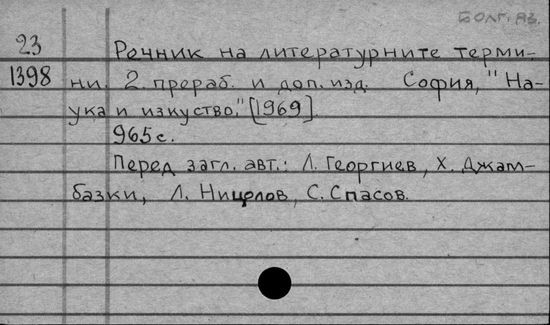 БОЛГ. ЯЗ.
23
1398
Речник на литературните терми-
ни. 2. прераб. и доп. изд. София, "На-
ука и изкуство." [1969].
965 с.
Перед загл. авт.: Л. Георгиев, Х. Джам-
базки, Л. Ницолов, С. Спасов.